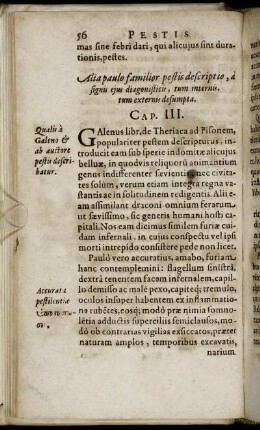 56 PESTIS
mas sine febri dari, qui alicujus sint dura-
tionis, pestes.
Alia paulo familior pestis descriptio, à
signis ejus diagonisticis, tum internis,
tum externis desumpta.
CAP. III.
Qualis à
Galeno &
ab auctore
pestis descri-
batur.
GAlenus libr. de Theriaca ad Pisonem,
populariter pestem descripturus, in-
troducit eam sub specie indomitæ alicujus
belluæ, in quodvis reliquorũ animantium
genus indifferenter sævientis nec civita-
tes solùm, verum etiam integra regna va-
stantis ac in solitudinem redigentis. Alii e-
am assimilant draconi omnium ferarum,
ut sævissimo, sic generis humani hosti ca-
pitali. Nos eam dicimus similem furiæ cui-
dam infernali, in cujus conspectu vel ipsi
morti intrepido consistere pede non licet.
Paulò vero accuratius, amabo, furiam
hanc contemplemini: flagellum sinistrâ,
dextrâ tenentem facem infernalem, capil-
lo demisso ac malè pexo, capiteq; tremulo,
oculos insuper habentem ex inflammatio-
ne rubētes, eosq; modò præ nimia somno-
lētia adductis superciliis semiclausos, mo-
dò ob contrarias vigilias exsiccatos, præter
naturam amplos, temporibus excavatis,
narium
Accurata
pestilentiæ